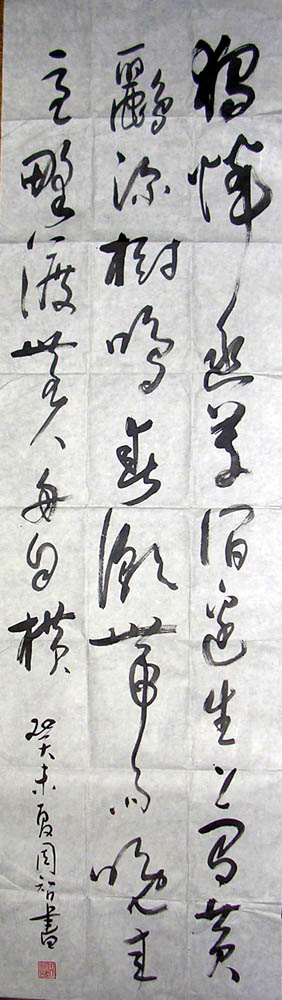 獨憐幽草澗邊生上有黃
鸝深樹鳴春潮帶雨晚来
急野渡無人舟自横
癸未夏周智書